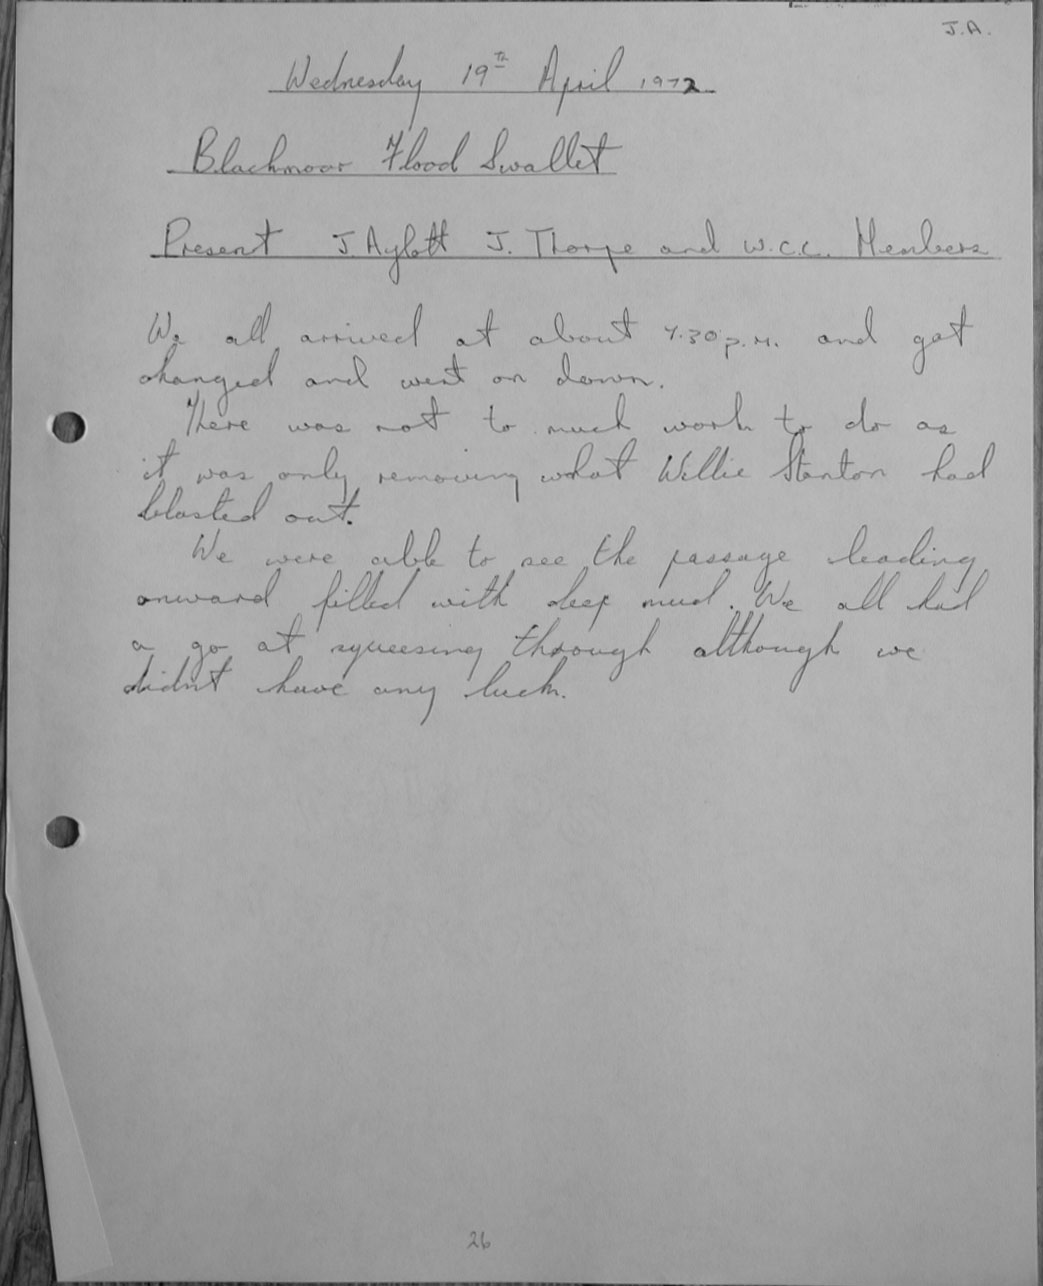 J.A.
Wednesday 19th April 1972
Blackmoor Flood Swallet
Present J. Aylott J. Thorpe and W.C.C. Members
We all arrived at about 7.30p.m. and got
changed and went on down.
There was not to much work to do as
it was only removing what Willie Stanton had
blasted out.
We were able to see the passage leading
onward filled with deep mud. We all had
a go at squeesing through although we
didnt have any luck.
26